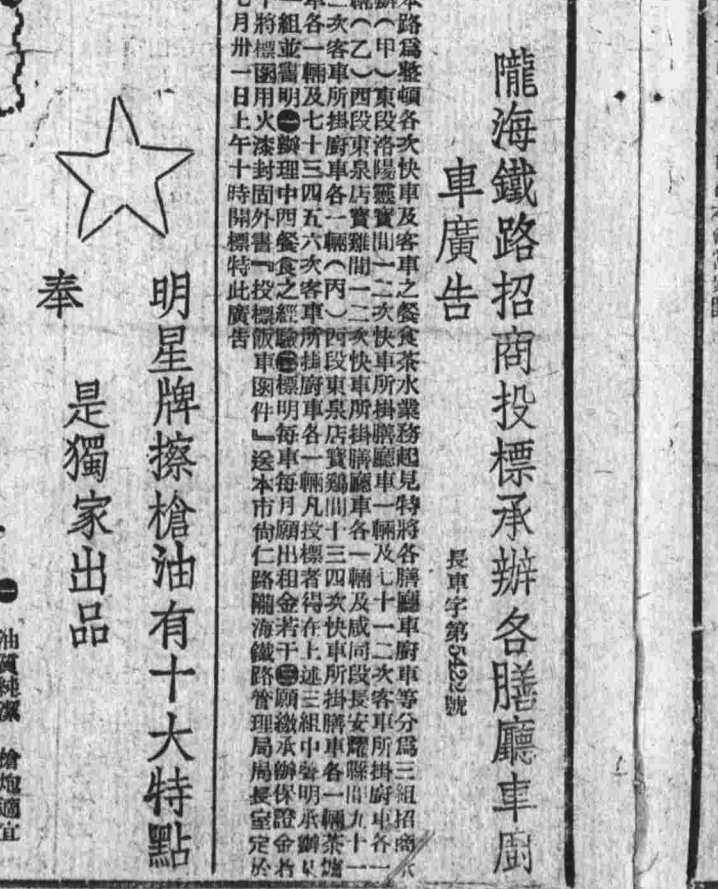 隴海鐵路招商投標承辦各膳廳車廚
車廣告
長車字第5422號
本路為整頓各次快車及客車之餐食茶水業務起見特將各膳廳車廚車等分為三組招商
(甲)東段洛陽靈寶間一二次快車所掛膳廳車一輛及七十一二次客車所掛廚車各一
(乙)西段東泉店寶雞間一二次快車所掛膳廳車各一輛及咸同段長安耀縣間九十一
二次客車所掛廚車各一輛(丙)西段東泉店寶鷄間十三四次快車所掛膳車各一輛茶爐
車各一輛及七十三四五六次客車所掛廚車各一輛凡投標者得在上述三組中聲明承辦某
一組並書明㊀辦理中西餐食之經驗㊁標明每車每月願出租金若干㊂願繳承辦保證金若
將標函用火漆封固外書『投標飯車函件』送本市尚仁路隴海鐵路管理局局長室定於
七月卅一日上午十時開標特此廣告
明星牌擦槍油有十大特點
是獨家出品
奉
㊀ 油質純潔 槍炮適宜